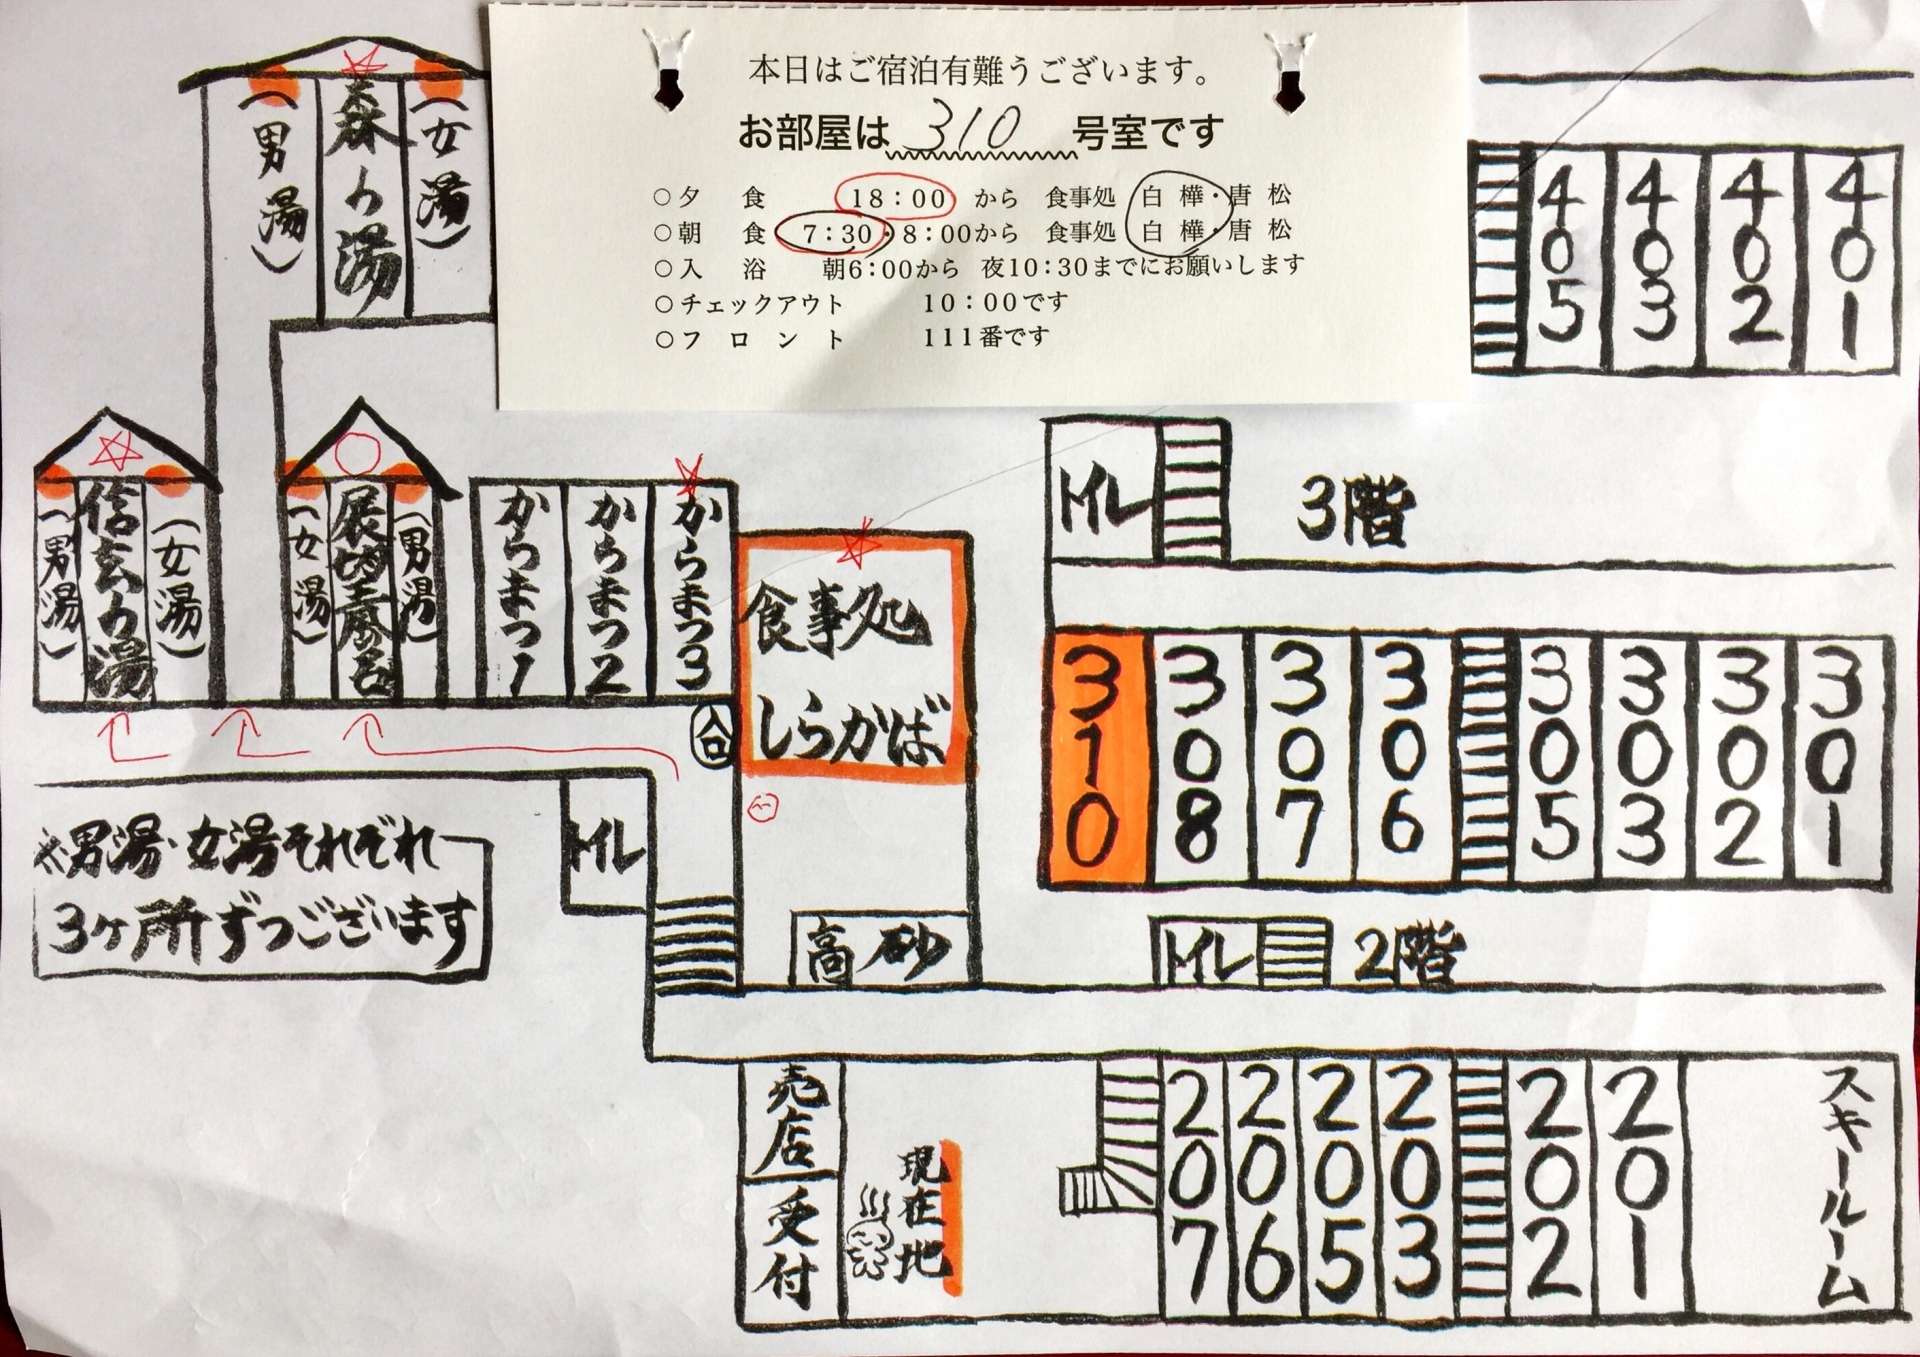 本日はご宿泊有難うございます。
お部屋は 310 号室です
○夕食 18:00 から 食事処 白樺・唐松
○朝食 7:30・8:00から 食事処 白樺・唐松
○入浴 朝6:00から 夜10:30までにお願いします
○チェックアウト 10:00です
○フロント 111番です
(男湯)
森の湯
(女湯)
405
403
402
401
(男湯)
信玄の湯
(女湯)
(女湯)
展望風呂
(男湯)
からまつ1
からまつ2
からまつ3
入口
食事処
しらかば
トイレ
3階
310
308
307
306
305
303
302
301
※男湯・女湯それぞれ
3ヶ所ずつございます
トイレ
高砂
トイレ
2階
売店
受付
現在地
207
206
205
203
202
201
スキールーム